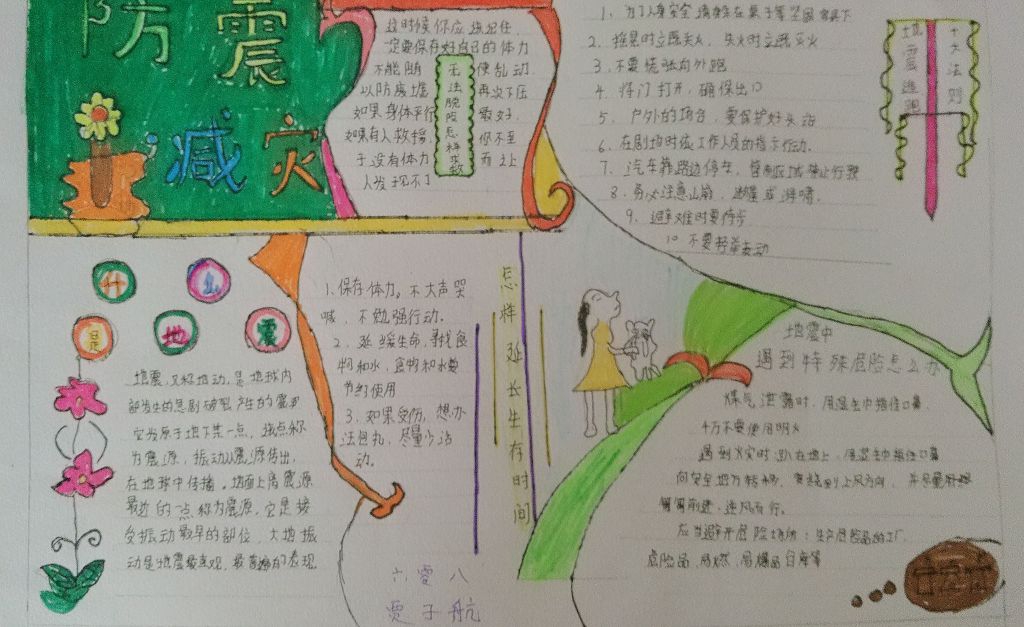 防震
减灾
这时候你应该记住
一定要保存好自己的体力
不能随便乱动
以防废墟再次下压
如果身体平行最好
如果有人救援,你不至
于没有体力而让
人发现不了
无法脱险怎样求救
1、为了人身安全请躲在桌子等坚固家具下
2. 摇晃时立即关火,失火时立即灭火
3. 不要慌张向外跑
4. 将门打开,确保出口
5、户外的场合,要保护好头部
6. 在剧场时依工作人员的指示行动.
7、汽车靠路边停车,管制区域禁止行驶
8. 务必注意山崩、
9. 避难时要徒步
10. 不要轻举妄动
地震逃跑
十大法则
什么
是地震
地震,又称地动,是地球内
部发生的急剧破裂产生的震波
它发源于地下某一点,该点称
为震源,振动从震源传出,
在地球中传播。地面上离震源
最近的一点称为震源,它是接
受振动最早的部位,大地振
动是地震最直观,最普遍的表现
1、保存体力。不大声哭
喊,不勉强行动。
2. 延缓生命,寻找食
物和水,食物和水要
节约使用
3. 如果受伤,想办
法包扎,尽量少活
动。
怎样延长生存时间
地震中
遇到特殊危险怎么办
煤气泄露时,用湿毛巾捂住口鼻,
千万不要使用明火
遇到火灾时,趴在地上,用湿毛巾捂住口鼻
向安全地方转移,
匍匐前进,逆风而行。
应当避开危险场所:生产危险品的工厂
危险品,易燃,易爆品仓库等
六零八
贾子航